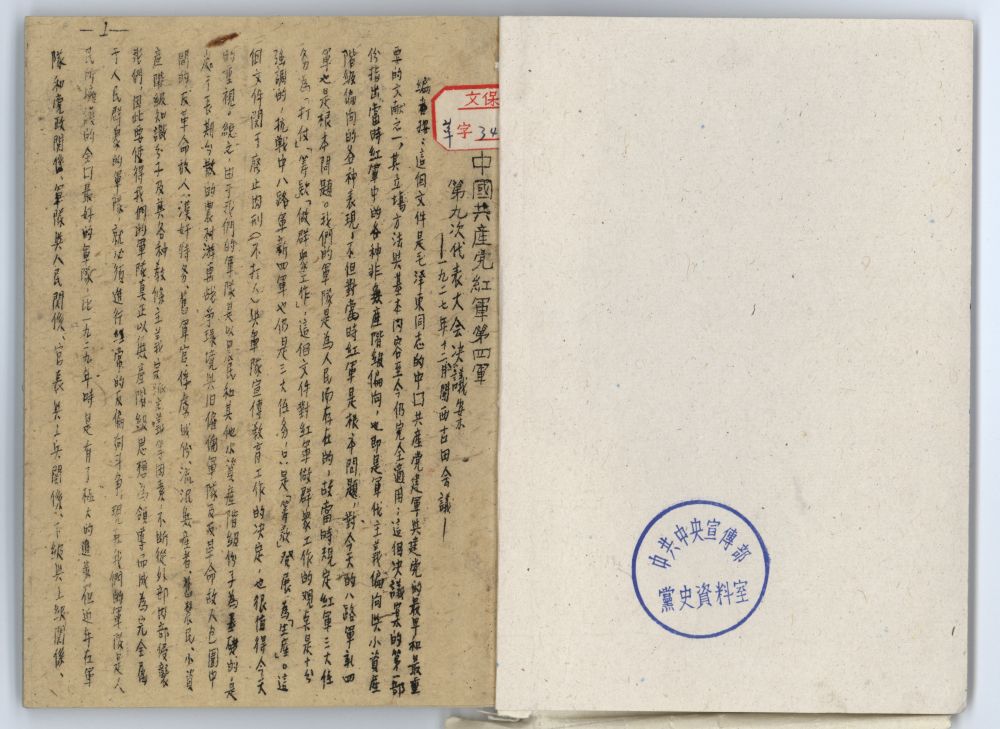 —1—
文保
革字34
中國共產党紅軍第四軍
第九次代表大会決議案
—一九二七年十二月閩西古田会議—
編者按：這個文件是毛澤東同志的中囗共產党建軍與建党的最早和最重
要的文献之一，其立場方法與基本内容至今仍完全適用；這個決議案的第一部
份指出當時紅軍中的各种非無產階級偏向，也即是軍伐主義偏向與小資產
階級偏向的各种表現，不但對當時紅軍是根本問題，對今天的八路軍新四
軍也是根本問題。我們的軍隊是為人民而存在的，故當時規定紅軍三大任
务為「打仗」「籌款」「做群眾工作」，這個文件對紅軍做群眾工作的观点是十分
強調的，抗戰中八路軍新四軍也仍是三大任务，只是「籌款」發展為「生產」。這
個文件関于廢止肉刑（不打人）與軍隊宣傳教育工作的決定，也很值得今天
的重視。總之，由于我們的軍隊是以农民和其他小資產階級份子為基礎的，是
处于長期分散的農村游擊战爭環境與旧僱傭軍隊及反革命敌人包圍中
間的，反革命敌人，漢奸特务，舊軍官俘虜成份，流氓無產者，舊農民、小資
產階級知識分子及其各种教條主義宗派主義等因素，不断從外部内部侵襲
我們，因此要使得我們的軍隊真正以無產階級思想為領導而成為完全屬
于人民群眾的軍隊，就必須進行經常的反偏向斗爭，現在我們的軍隊是人
民所擁護的全囗最好的軍隊，比一九二九年時是有了極大的進步，但近年在軍
隊和党政関係、軍隊與人民関係、官長與士兵関係、下級與上級関係、
中共中央宣傳部
黨史資料室